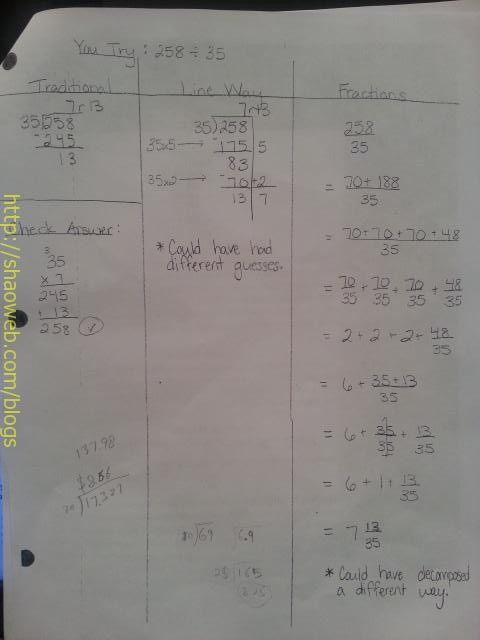 You Try: 258 ÷ 35
Traditional
7 r 13
35)258
-245
13
Check Answer:
3
35
x 7
245
+ 13
258 ✓
137.98
Line Way
7 r 13
35)258
35x5 → -175 5
83
35x2 → -70 +2
13 7
* Could have had
different guesses.
Fractions
258
35
= 70 + 188
35
= 70 + 70 + 70 + 48
35
= 70/35 + 70/35 + 70/35 + 48/35
= 2 + 2 + 2 + 48/35
= 6 + 35+13
35
= 6 + 35/35 + 13/35
= 6 + 1 + 13/35
= 7 13/35
* Could have decomposed
a different way.
http://shaoweb.com/blogs